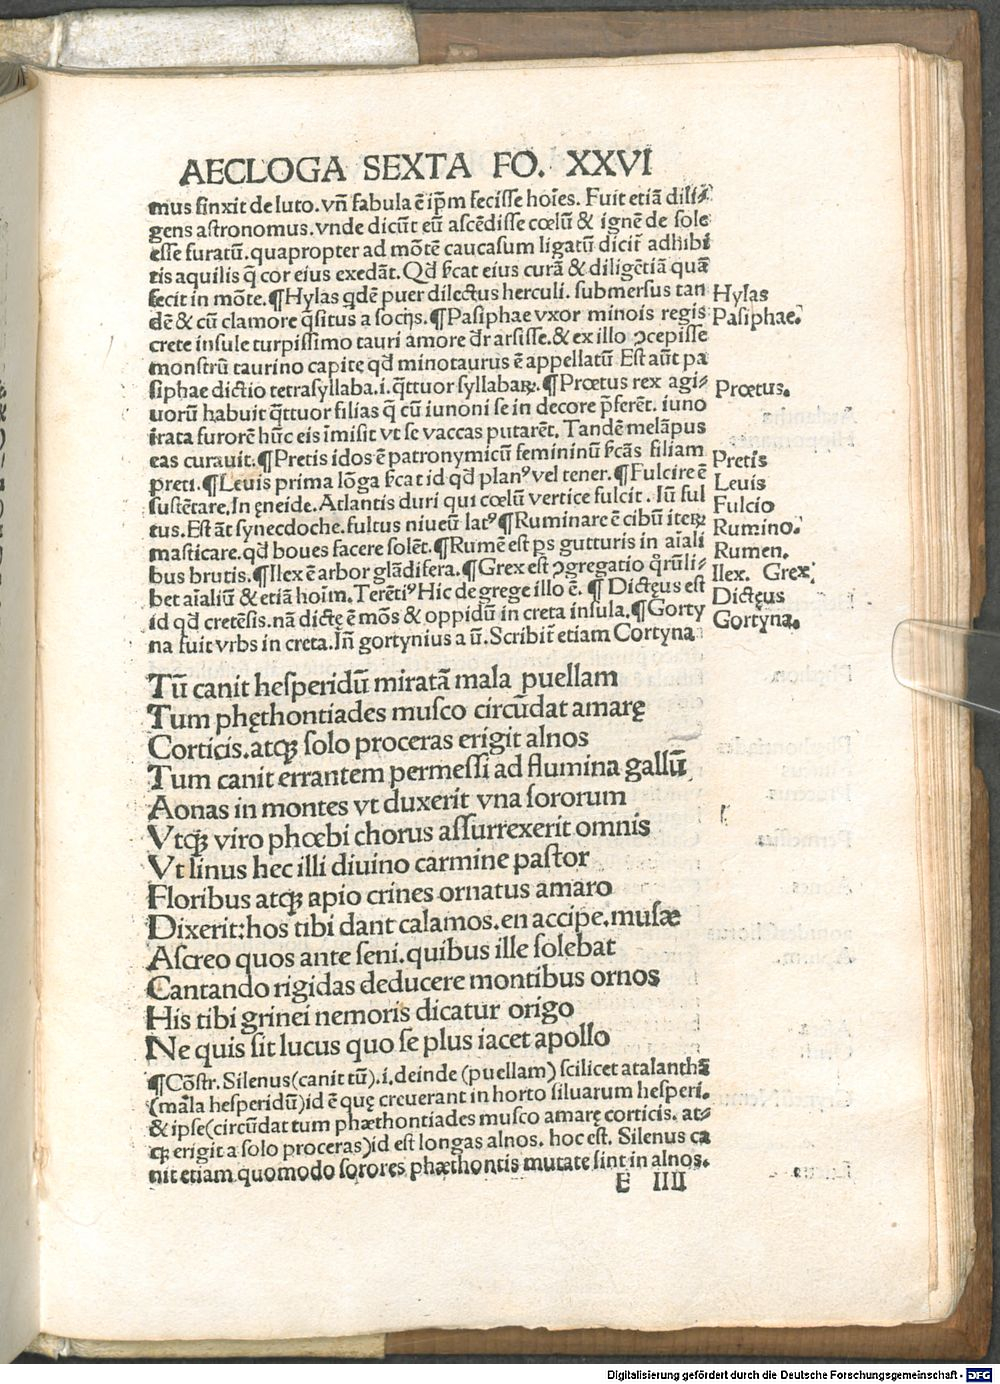 AECLOGA SEXTA FO. XXVI
mus finxit de luto. vñ fabula ē ip̄m fecisse hoīes. Fuit etiā dili⸗
gens astronomus. vnde dicūt eū ascēdisse cœlū & ignē de sole
esse furatū. quapropter ad mōtē caucasum ligatū dicit᷑ adhibi
tis aquilis q̄ cor eius exedāt. Qđ ſ̄cat eius curā & diligētiā quā
fecit in mōte. ¶Hylas qdē puer dilectus herculi. submersus tan
dē & cū clamore q̄situs a socijs. ¶Pasiphae vxor minois regis
crete insule turpissimo tauri amore dr̄ arsisse. & ex illo ɔcepisse
monstrū taurino capite qđ minotaurus ē appellatū Est aūt pa
siphae dictio tetrasyllaba .i. q̄ttuor syllabaꝝ. ¶Prœtus rex agi⸗
uorū habuit q̄ttuor filias q̄ cū iunoni se in decore p̄ferēt. iuno
irata furorē hūc eis īmisit vt se vaccas putarēt. Tandē melāpus
eas curauit. ¶Pretis idos ē patronymicū femininū ſ̄cās filiam
preti. ¶Leuis prima lōga ſ̄cat id qđ planꝰ vel tener. ¶Fulcire ē
sustētare. In ęneide. Atlantis duri qui cœlū vertice fulcit. Iū ful
tus. Est āt synecdoche. fultus niueū latꝰ ¶Ruminare ē cibū iteꝝ
masticare. qđ boues facere solēt. ¶Rumē est ps gutturis in aīali
bus brutis. ¶Ilex ē arbor glādifera. ¶Grex est ɔgregatio qr̄ūli⸗
bet aīaliū & etiā hoīm. Terētiꝰ Hic de grege illo ē. ¶ Dictęus est
id qđ cretēsis. nā dictę ē mōs & oppidū in creta insula. ¶Gorty
na fuit vrbs in creta. Iñ gortynius a ū. Scribit᷑ etiam Cortyna
Hylas
Pasiphae.
Prœtus.
Pretis
Leuis
Fulcio
Rumino.
Rumen.
Ilex. Grex
Dictęus
Gortyna.
Tū canit hesperidū miratā mala puellam
Tum phęthontiades musco circūdat amarę
Corticis. atqꝫ solo proceras erigit alnos
Tum canit errantem permessi ad flumina gallū
Aonas in montes vt duxerit vna sororum
Vtqꝫ viro phœbi chorus assurrexerit omnis
Vt linus hec illi diuino carmine pastor
Floribus atqꝫ apio crines ornatus amaro
Dixerit: hos tibi dant calamos. en accipe. musæ
Ascreo quos ante seni. quibus ille solebat
Cantando rigidas deducere montibus ornos
His tibi grinei nemoris dicatur origo
Ne quis sit lucus quo se plus iacet apollo
¶Cōstr. Silenus (canit tū) .i. deinde (puellam) scilicet atalanthā
(mala hesperidū) id ē quę creuerant in horto siluarum hesperi.
& ipse (circūdat tum phæthontiades musco amarę corticis. at⸗
qꝫ erigit a solo proceras) id est longas alnos. hoc est. Silenus ca
nit etiam quomodo sorores phæthontis mutate sint in alnos.
E IIII
Digitalisierung gefördert durch die Deutsche Forschungsgemeinschaft - DFG